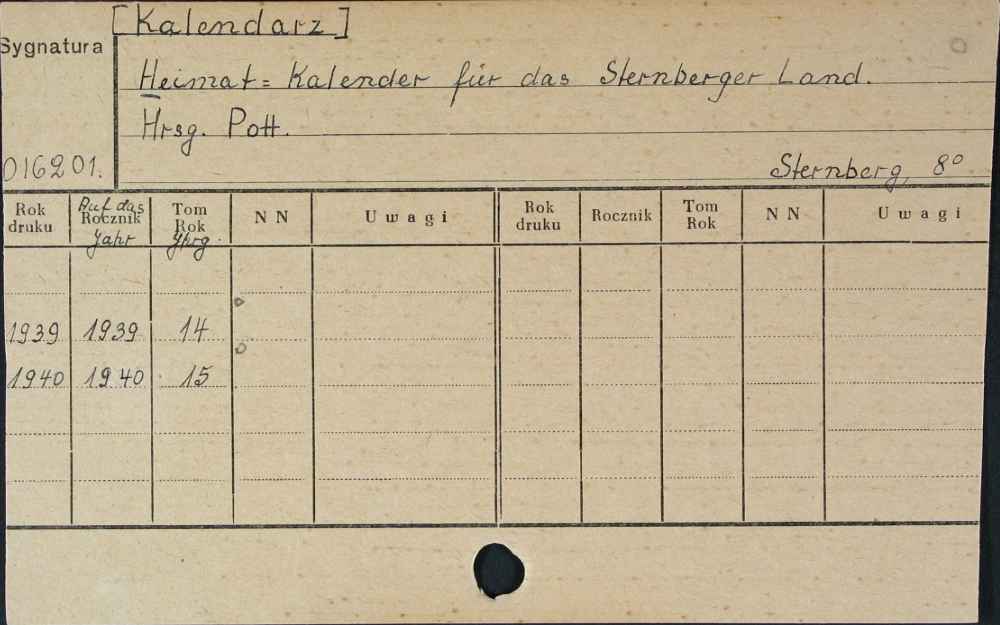 [Kalendarz]
Sygnatura
Heimat = Kalender für das Sternberger Land.
Hrsg. Pott.
016201.
Sternberg, 8°
Rok druku | Auf das Rocznik Jahr | Tom Rok Jhrg. | NN | Uwagi | Rok druku | Rocznik | Tom Rok | NN | Uwagi
1939 1939 14
1940 1940 15